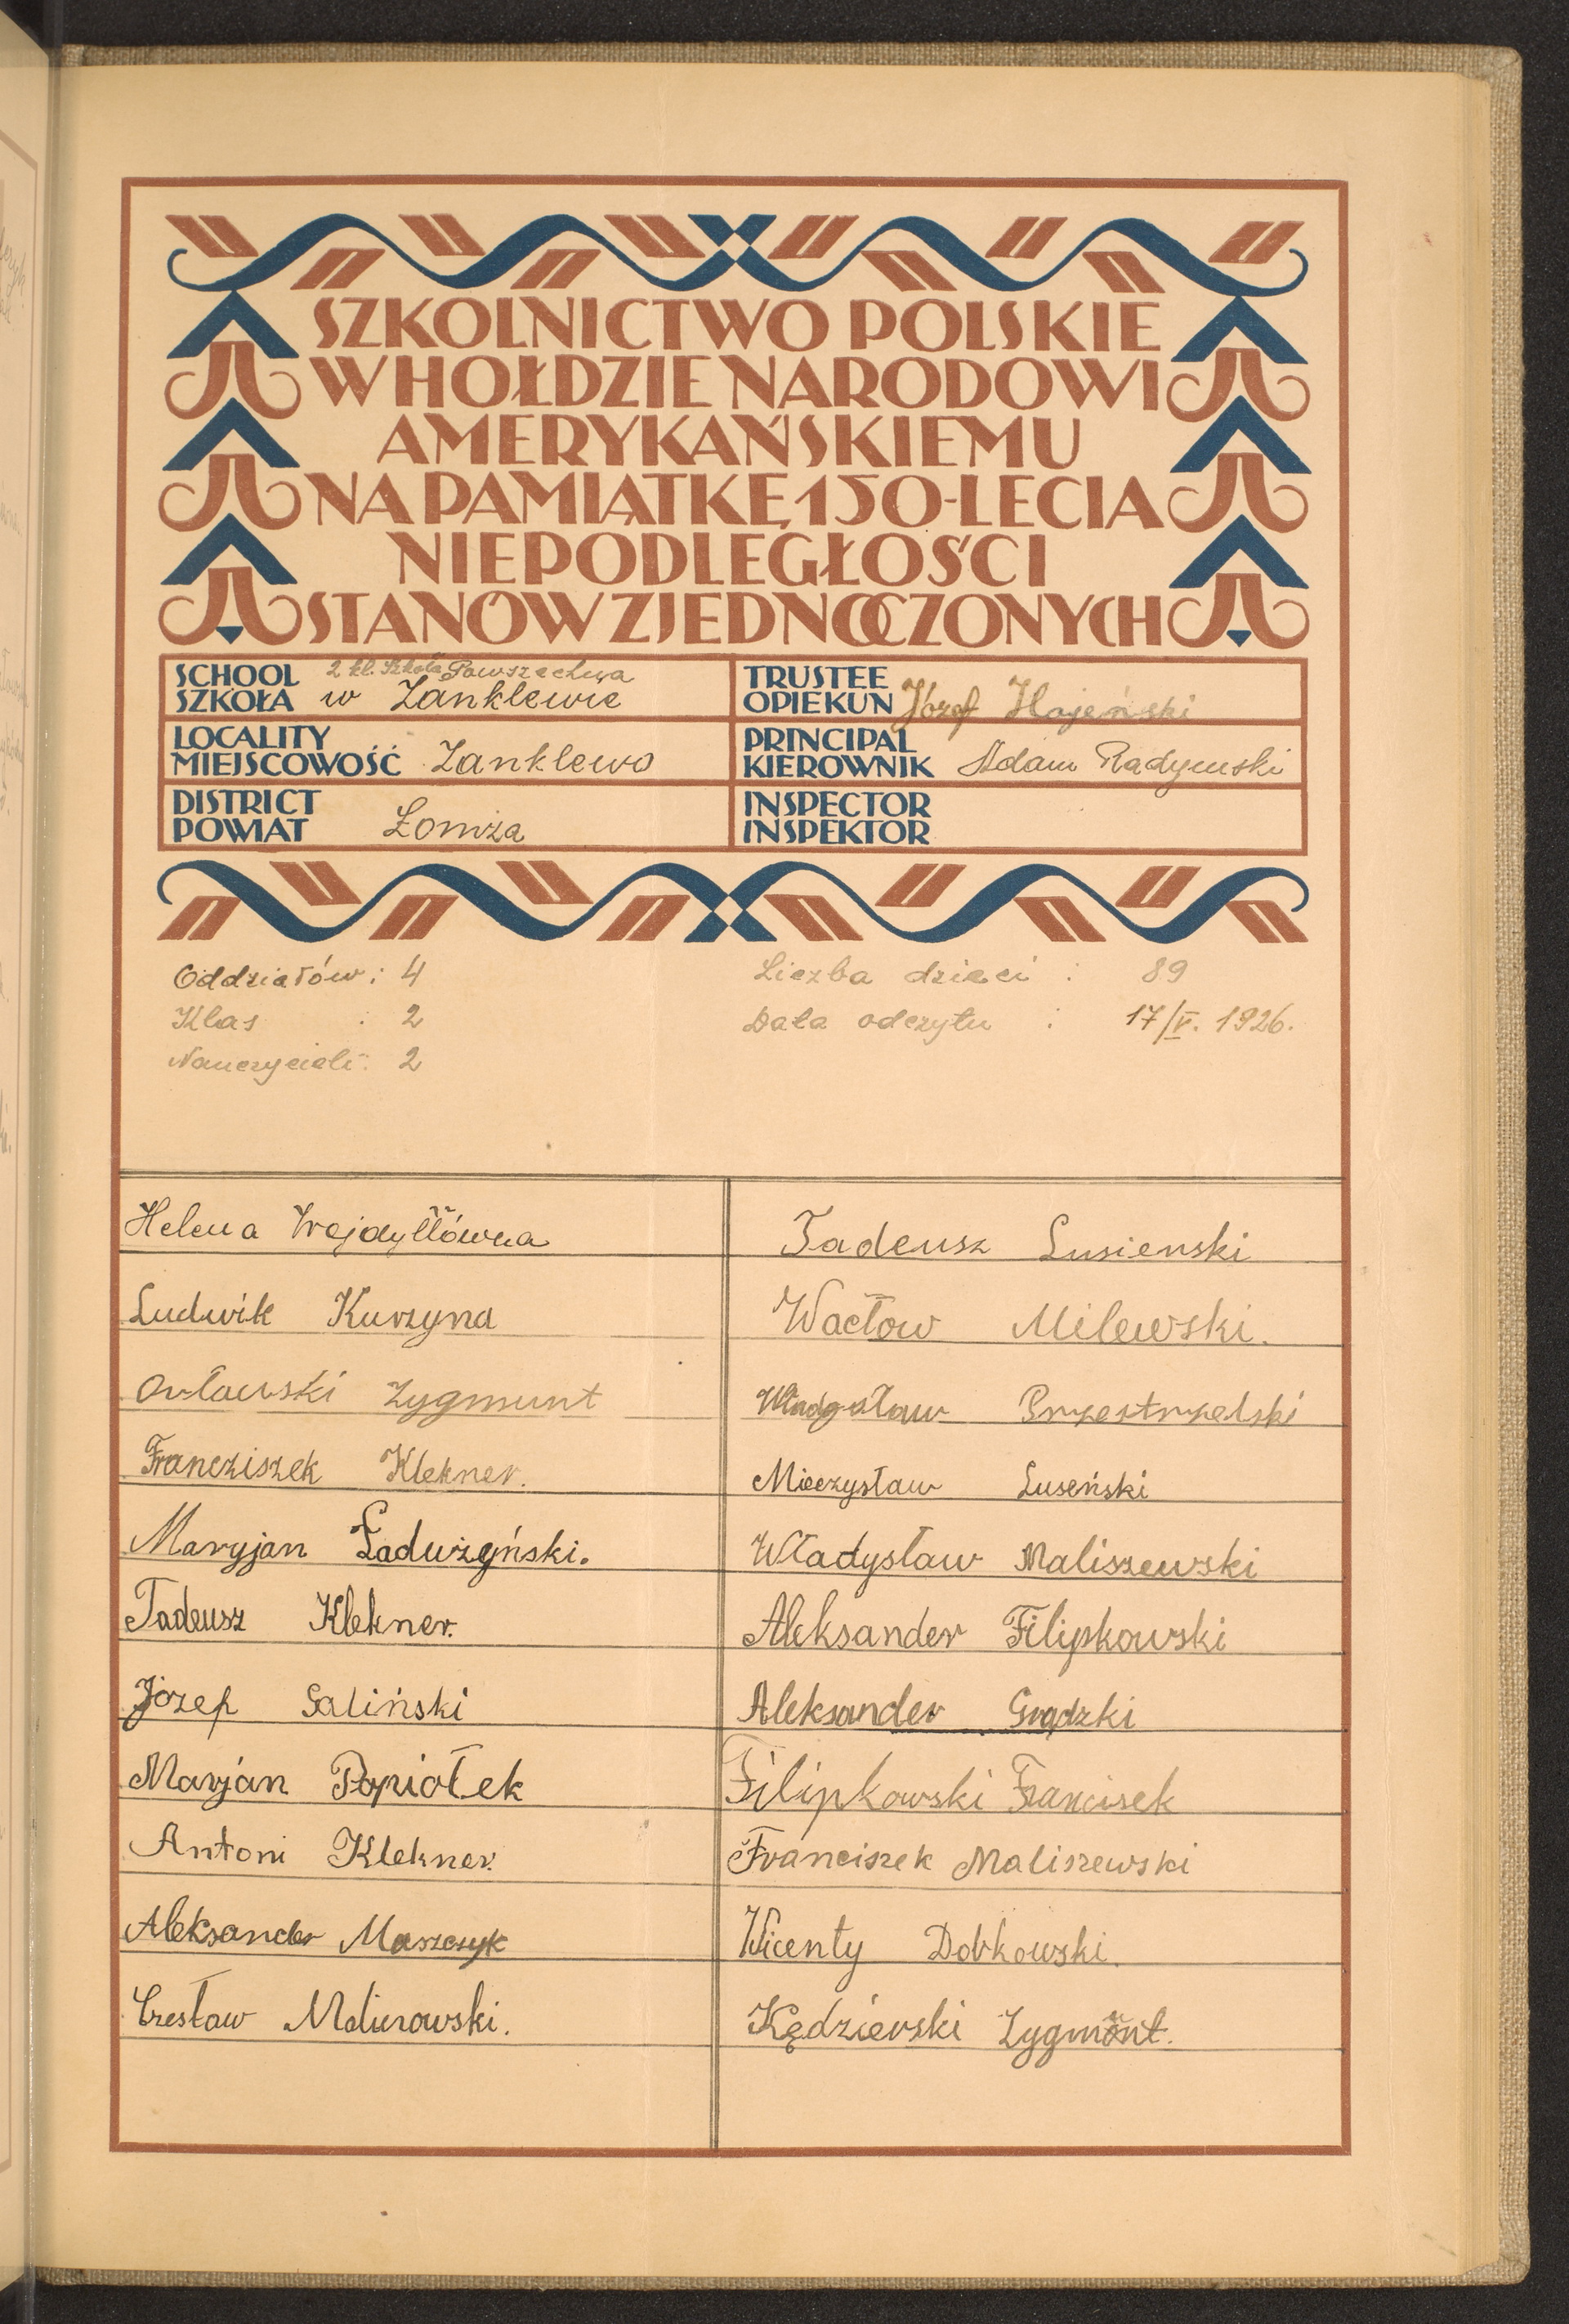 SZKOLNICTWO POLSKIE
W HOŁDZIE NARODOWI
AMERYKAŃSKIEMU
NA PAMIĄTKĘ 150-LECIA
NIEPODLEGŁOŚCI
STANÓW ZJEDNOCZONYCH
SCHOOL
SZKOŁA
2 kl. Szkoła Powszechna
w Zanklewie
TRUSTEE
OPIEKUN
Józef
LOCALITY
MIEJSCOWOŚĆ Zanklewo
PRINCIPAL
KIEROWNIK Adam Radymski
DISTRICT
POWIAT Łomża
INSPECTOR
INSPEKTOR
Oddziałów: 4
Liczba dzieci : 89
Klas : 2
Data odczytu : 17/V. 1926.
Nauczycieli: 2
Helena Wojdyłłówna
Tadeusz Lusienski
Ludwik Kurzyna
Wacłow Milewski.
Orłowski Zygmunt
Władysław
Francziszek Klekner.
Mieczysław Luseński
Maryjan Ładużyński.
Władysław Maliszewski
Tadeusz Klekner.
Aleksander Filipkowski
Józef Saliński
Aleksander Grądzki
Marjan Popiołek
Filipkowski Francisek
Antoni Klekner.
Franciszek Maliszewski
Aleksander Maszczyk
Wicenty Dobkowski.
Czesław Malinowski.
Kędzierski Zygmont.